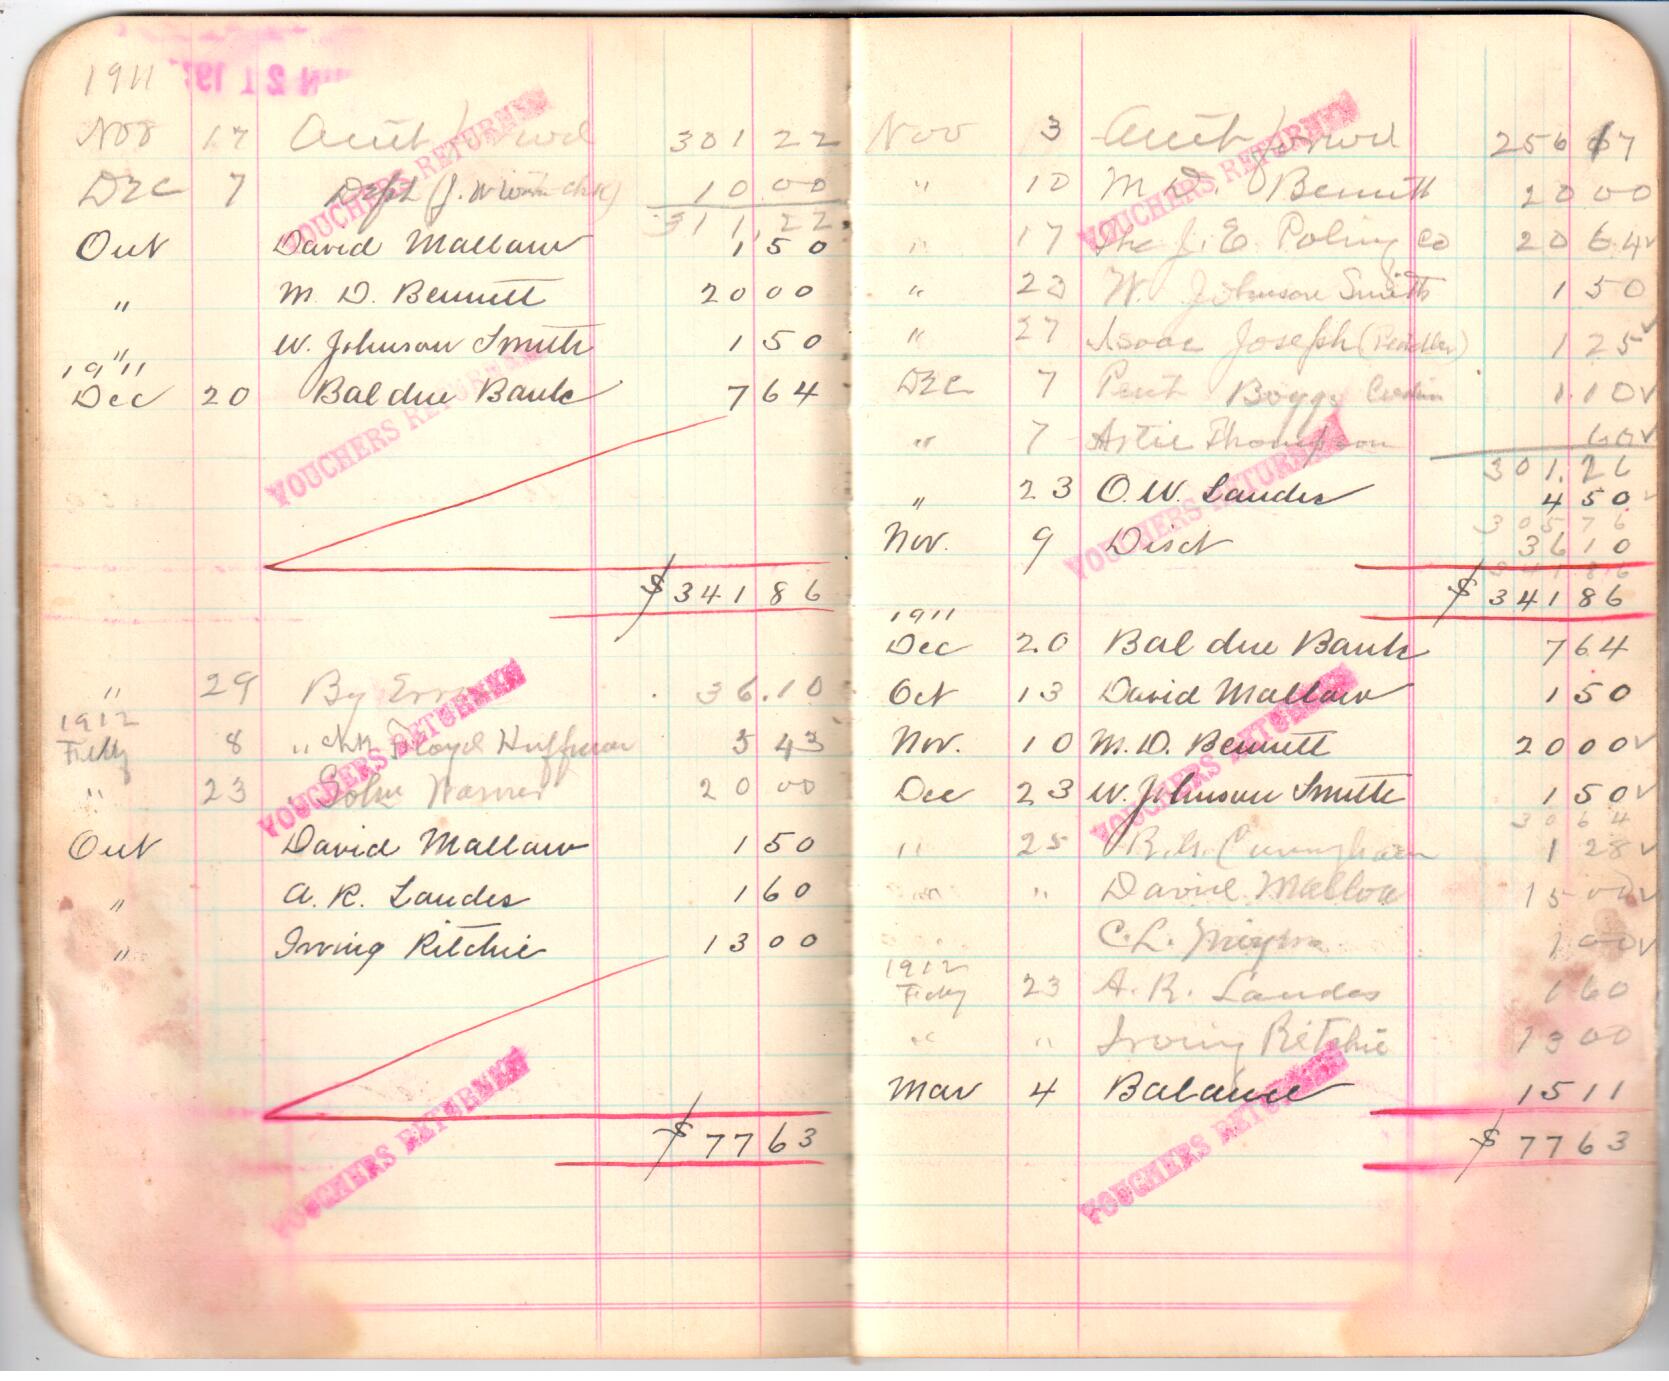 1911
Nov 17 Amt forwd 301 22
Dec 7 Dept (J. W 10 00
311,22
Out David Mallow 1 50
" M. D. Bennett 20 00
" W. Johnson Smith 1 50
1911
Dec 20 Bal due Bank 7 64
$341 86
" 29 By Error 36.10
1912
Feby 8 " Chk Floyd Huffman 5 43
" 23 " John Warner 20 00
Out David Mallow 1 50
" A. R. Landes 1 60
" Irving Ritchie 13 00
$77 63
VOUCHERS RETURNED
VOUCHERS RETURNED
VOUCHERS RETURNED
VOUCHERS RETURNED
Nov 3 Amt forwd 256 17
" 10 M. D. Bennett 20 00
" 17 The J. E. Poling Co 20 64
" 23 W. Johnson Smith 1 50
" 27 Isaac Joseph (Pendler) 1 25
Dec 7 Boggs 1.10
" 7 Artie Thompson 60
301.26
" 23 O. W. Landes 4 50
305 76
Nov. 9 Disct 36 10
341 86
$341 86
1911
Dec 20 Bal due Bank 7 64
Oct 13 David Mallow 1 50
Nov. 10 M. D. Bennett 20 00
Dec 23 W. Johnson Smith 1 50
30 64
" 25 Cunningham 1 28
" " David Mallow 15 00
C. L. 1 00
1912
Feby 23 A. R. Landes 1 60
" " Irving Ritchie 13 00
Mar 4 Balance 15 11
$77 63
VOUCHERS RETURNED
VOUCHERS RETURNED
VOUCHERS RETURNED
VOUCHERS RETURNED